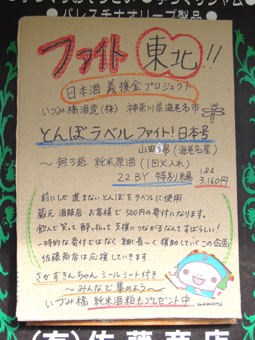 パレスチナオリーブ製品
ファイト 東北!!
日本酒 義援金 プロジェクト
いづみ橋酒造(株) 神奈川県海老名市
とんぼラベル ファイト!日本号
山田錦 (海老名産)
純米原酒 (1回火入れ)
22BY 特別編
1.8ℓ
3,160円
前にしか進まないとんぼをラベルに使用
蔵元・酒類店・お客様で500円の寄付になります。
飲んで笑って酔っ払って支援につながるなんてすばらしい!
一時的な寄付ではなく細〜く長〜く援助していくこの企画
佐藤商店は応援していきます
さかずきんちゃん シールシート付き
〜みんなで集めよう〜
いづみ橋 純米酒粕もプレゼント中
mamoru
(有)佐藤商店